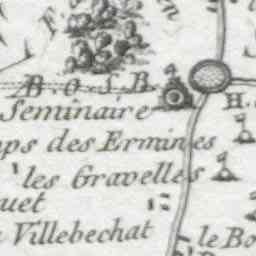 B.O.S.B.
Seminaire
H.
ps des Ermines
les Gravelles
uet
Villebechat
le Bo